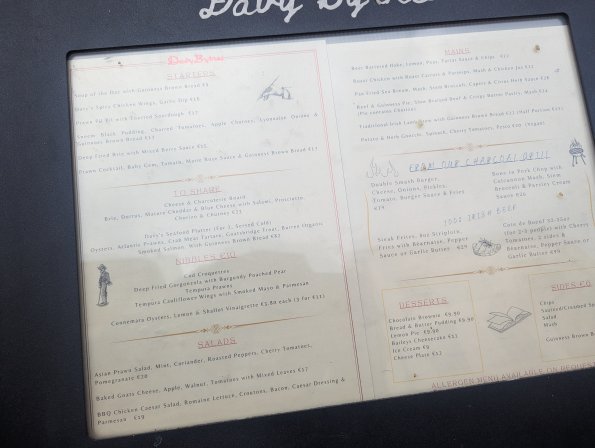 Davy Byrnes
Davy Byrnes
STARTERS
Soup of the Day with Guinness Brown Bread
Spicy Chicken Wings, Garlic Dip
Prawn Pil Pil with Toasted Sourdough
Sneem Black Pudding, Charred Tomatoes, Apple Chutney, Lyonnaise Onions &
Guinness Brown Bread
Deep Fried Brie with Mixed Berry Sauce
Prawn Cocktail, Baby Gem, Tomato, Marie Rose Sauce & Guinness Brown Bread €17
TO SHARE
Cheese & Charcuterie Board
Brie, Durrus, Mature Cheddar & Blue Cheese with Salami, Prosciutto,
Chorizo & Chutney
Davy's Seafood Platter (For 2, Served Cold)
Oysters, Atlantic Prawns, Crab Meat Tartare, Goatsbridge Trout, Burren Organic
Smoked Salmon, With Guinness Brown Bread
NIBBLES €10
Cod Croquettes
Deep Fried Gorgonzola with Burgundy Poached Pear
Tempura Prawns
Tempura Cauliflower Wings with Smoked Mayo & Parmesan
Connemara Oysters, Lemon & Shallot Vinaigrette €3.80 each
SALADS
Asian Prawn Salad, Mint, Coriander, Roasted Peppers, Cherry Tomatoes,
Pomegranate €20
Baked Goats Cheese, Apple, Walnut, Tomatoes with Mixed Leaves €17
BBQ Chicken Caesar Salad, Romaine Lettuce, Croutons, Bacon, Caesar Dressing &
Parmesan €19
MAINS
Beer Battered Hake, Lemon, Peas, Tartar Sauce & Chips
Roast Chicken with Roast Carrots & Parsnips, Mash & Chicken Jus
Pan Fried Sea Bream, Mash, Stem Broccoli, Capers & Citrus Herb Sauce
Beef & Guinness Pie, Slow Braised Beef & Crispy Butter Pastry, Mash
Traditional Irish with Guinness Brown Bread
Potato & Herb Gnocchi, Spinach, Cherry Tomatoes, Pesto (Vegan)
FROM OUR CHARCOAL GRILL
Double Smash Burger,
Cheese, Onions, Pickles,
Tomato, Burger Sauce & Fries
Bone in Pork Chop with
Colcannon Mash, Stem
Broccoli & Parsley Cream
Sauce
100% IRISH BEEF
Steak Frites, 8oz Striploin,
Fries with Bearnaise, Pepper
Sauce or Garlic Butter
Cote de Boeuf
with Cherry
Tomatoes, 2 sides &
Bearnaise, Pepper Sauce
or Garlic Butter
DESSERTS
Chocolate Brownie €9.90
Bread & Butter Pudding €9.90
Lemon Pie €9.90
Baileys Cheesecake
Ice Cream €9
Cheese Plate €12
SIDES €6
Chips
Salad
Mash
Guinness Brown
ALLERGEN MENU AVAILABLE ON REQUEST